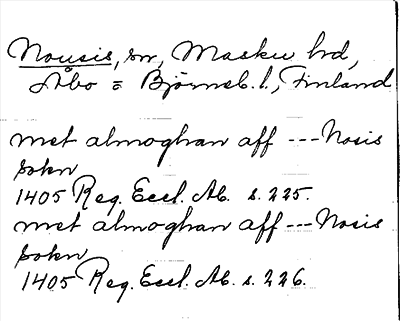 Nousis, sn, Masku hd,
Åbo = Björneb. l., Finland
met almoghan aff --- Nosis
sokn
1405 Reg. Eccl. Ab. s. 225.
met almoghan aff --- Nosis
sokn
1405 Reg. Eccl. Ab. s. 226.